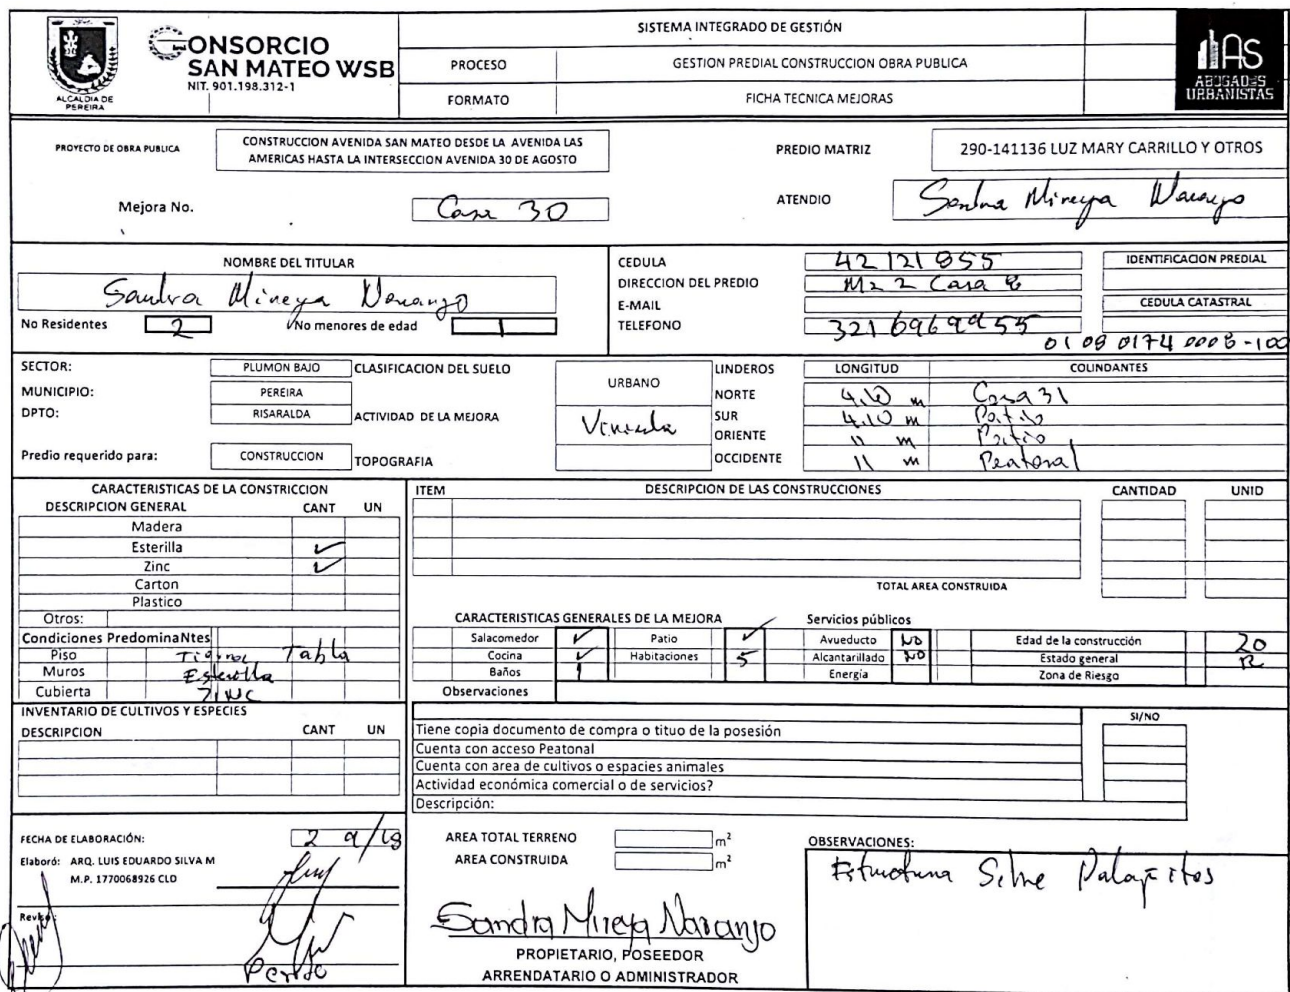 ALCALDIA DE PEREIRA
CONSORCIO SAN MATEO WSB
NIT. 901.198.312-1
SISTEMA INTEGRADO DE GESTIÓN
PROCESO GESTION PREDIAL CONSTRUCCION OBRA PUBLICA
FORMATO FICHA TECNICA MEJORAS
AS ABOGADOS URBANISTAS
PROYECTO DE OBRA PUBLICA
CONSTRUCCION AVENIDA SAN MATEO DESDE LA AVENIDA LAS
AMERICAS HASTA LA INTERSECCION AVENIDA 30 DE AGOSTO
PREDIO MATRIZ 290-141136 LUZ MARY CARRILLO Y OTROS
Mejora No. Casa 30
ATENDIO Sandra Mireya Naranjo
NOMBRE DEL TITULAR
Sandra Mireya Naranjo
No Residentes 2 No menores de edad 1
CEDULA 42121855
DIRECCION DEL PREDIO Mz 2 Casa 8
E-MAIL
TELEFONO 3216969955
IDENTIFICACION PREDIAL
CEDULA CATASTRAL
01 08 0174 0008-100
SECTOR: PLUMON BAJO
MUNICIPIO: PEREIRA
DPTO: RISARALDA
Predio requerido para: CONSTRUCCION
CLASIFICACION DEL SUELO URBANO
ACTIVIDAD DE LA MEJORA
TOPOGRAFIA
LINDEROS LONGITUD COLINDANTES
NORTE 4.10 m Casa 31
SUR 4.10 m Patio
ORIENTE 11 m Patio
OCCIDENTE 11 m Peatonal
CARACTERISTICAS DE LA CONSTRICCION
DESCRIPCION GENERAL CANT UN
Madera
Esterilla ✓
Zinc ✓
Carton
Plastico
Otros:
Condiciones PredominaNtes
Piso Tabla
Muros Esterilla
Cubierta ZINC
ITEM DESCRIPCION DE LAS CONSTRUCCIONES CANTIDAD UNID
TOTAL AREA CONSTRUIDA
CARACTERISTICAS GENERALES DE LA MEJORA
Salacomedor ✓ Patio ✓
Cocina ✓ Habitaciones 5
Baños 1
Observaciones
Servicios públicos
Avueducto NO
Alcantarillado NO
Energia
Edad de la construcción 20
Estado general R
Zona de Riesgo
INVENTARIO DE CULTIVOS Y ESPECIES
DESCRIPCION CANT UN
SI/NO
Tiene copia documento de compra o tituo de la posesión
Cuenta con acceso Peatonal
Cuenta con area de cultivos o espacies animales
Actividad económica comercial o de servicios?
Descripción:
FECHA DE ELABORACIÓN: 2 9/18
Elaboró: ARQ. LUIS EDUARDO SILVA M
M.P. 1770068926 CLD
Reviso:
AREA TOTAL TERRENO m²
AREA CONSTRUIDA m²
Sandra Mireya Naranjo
PROPIETARIO, POSEEDOR
ARRENDATARIO O ADMINISTRADOR
OBSERVACIONES:
Estructura Sobre Palafitos